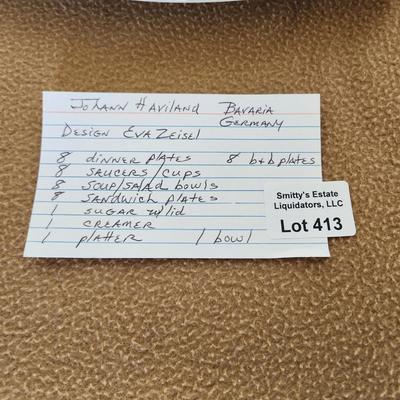 Johann Haviland Bavaria
Germany
Design Eva Zeisel
8 dinner plates 8 b+b plates
8 saucers/cups
8 soup/salad bowls
8 sandwich plates
1 sugar w/lid
1 creamer
1 platter 1 bowl
Smitty's Estate
Liquidators, LLC
Lot 413